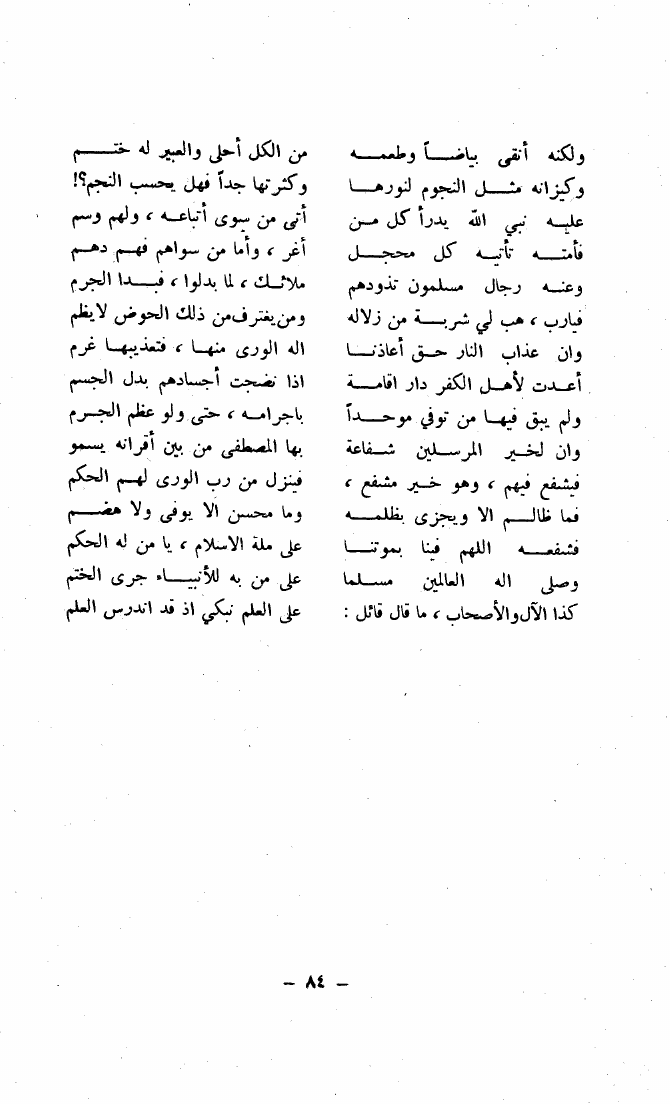 ولكنه أنقى بياضاً وطعمه من الكل أحلى والعبير له ختم
وكيزانه مثل النجوم لنورها وكثرتها جداً فهل يحسب النجم؟!
عليه نبي الله يدرأ كل من أتى من سوى أتباعه ، ولهم وسم
فأمته تأتيه كل محجل أغر ، وأما من سواهم فهم دهم
وعنه رجال مسلمون تذودهم ملائك ، لما بدلوا ، فبدا الجرم
فيارب ، هب لي شربة من زلاله ومن يغترف من ذلك الحوض لا يظم
وان عذاب النار حق أعاذنا اله الورى منها ، فتعذيبها غرم
أعدت لأهل الكفر دار اقامة اذا نضجت أجسادهم بدل الجسم
ولم يبق فيها من توفي موحداً باجرامه ، حتى ولو عظم الجرم
وان لخير المرسلين شفاعة بها المصطفى من بين أقرانه يسمو
فيشفع فيهم ، وهو خير مشفع ، فينزل من رب الورى لهم الحكم
فما ظالم الا ويجزى بظلمه وما محسن الا يوفى ولا هضم
فشفعه اللهم فينا بموتنا على ملة الاسلام ، يا من له الحكم
وصلى اله العالمين مسلما على من به للأنبياء جرى الختم
كذا الآل والأصحاب ، ما قال قائل : على العلم نبكي اذ قد اندرس العلم
- ٨٤ -